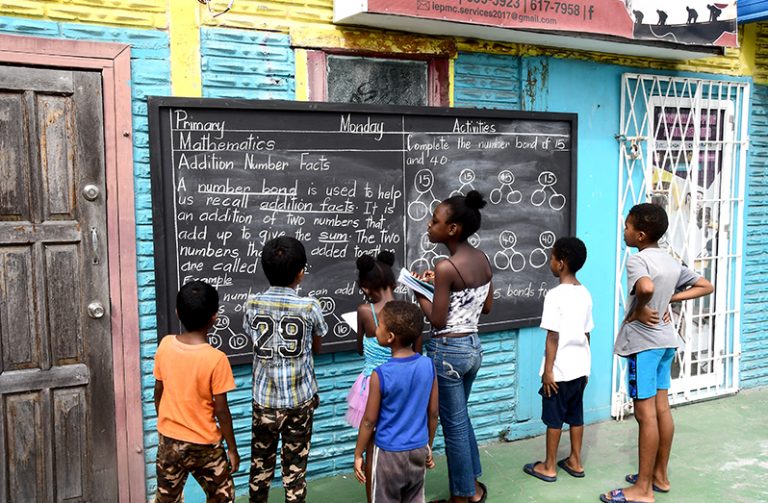 617-7958 | f
iepmc.services2017@gmail.com
Primary Monday Activities
Mathematics
Addition Number Facts
Complete the number bond of 15
and 40
A number bond is used to help
us recall addition facts. It is
an addition of two numbers that
add up to give the sum. The two
numbers added together
are called
Example
15 15 15
40 40
numbers can add
bonds for
20 20
10
29